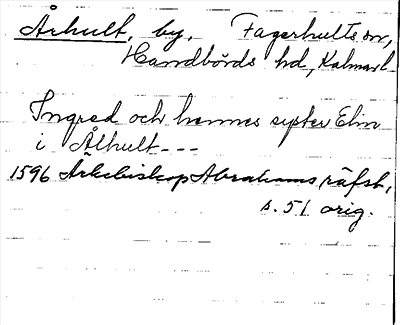 Århult, by, Fagerhults sn,
Handbörds hd, Kalmar l.
Ingred och hennes syster Elin
i Ålhult---
1596 Ärkebiskop Abrahams räfst,
s. 51 orig.